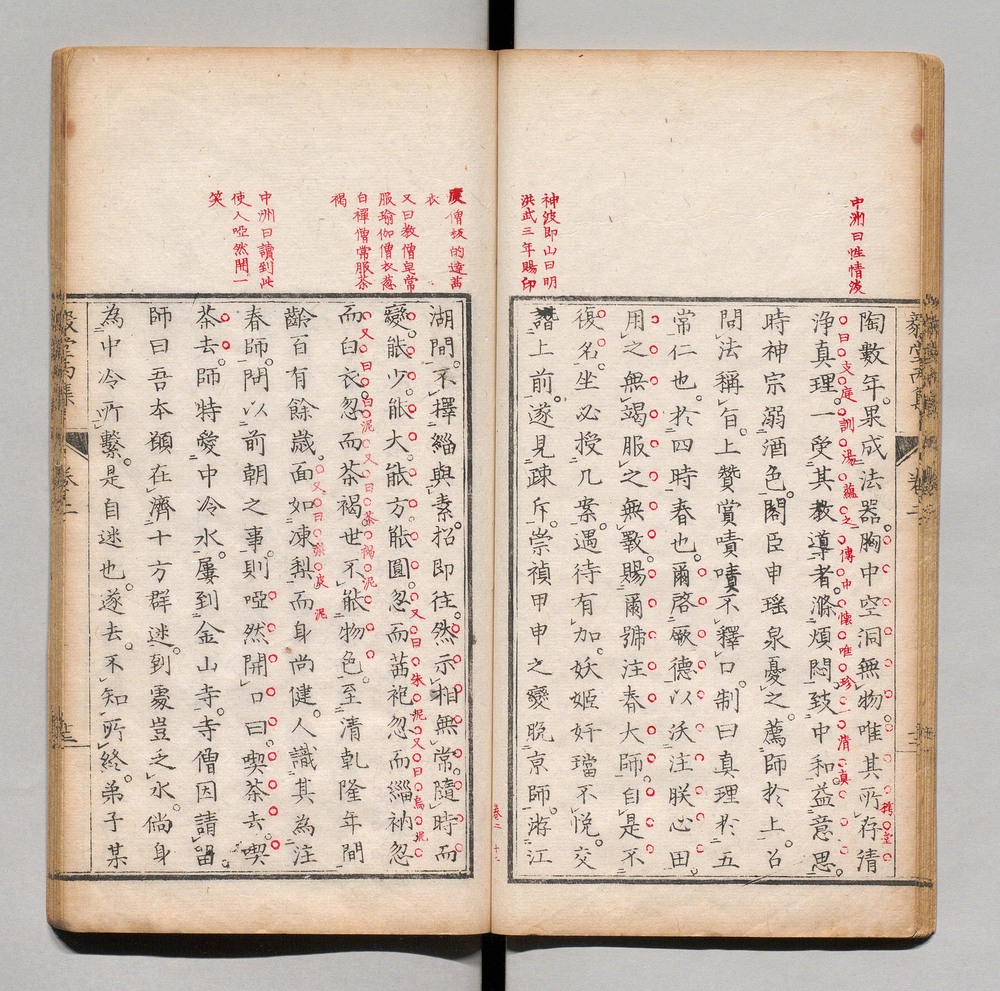 中洲曰性情淡
神波即山曰明
洪武三年賜印
陶數年果成法器胸中空洞無物唯其所存清
淨真理一受其教導者滌煩悶致中和益意思
時神宗溺酒色閣臣申瑤泉憂之薦師於上召
問法稱旨上贊賞嘖嘖不釋口制曰真理於五
常仁也於四時春也爾啓厥德以沃注朕心田
用之無竭服之無斁賜爾號注春大師自是不
復名坐必授几案遇待有加妖姬奸璫不悅交
譖上前遂見疎斥崇禎甲申之變脫京師游江
曰支庭訓湯蘊之傳中懷唯珍一清真
衣
又曰教僧皂常
服瑜伽僧衣葱
白禪僧常服茶
褐
中洲曰讀到此
使人啞然開一
笑
湖間不擇緇與素招即往然示相無常隨時而
變能少能大能方能圓忽而茁袍忽而緇衲忽
而白衣忽而茶褐世不能物色至清乾隆年間
齡百有餘歲面如凍梨而身尚健人識其為注
春師問以前朝之事則啞然開口曰喫茶去喫
茶去師特愛中冷水屢到金山寺寺僧因請留
師曰吾本願在濟十方群迷到處豈乏水倘身
為中冷所繫是自迷也遂去不知所終弟子某
又曰朱泥又曰烏泥
又曰白泥又曰茶褐泥
又曰梨皮泥
卷二
十二